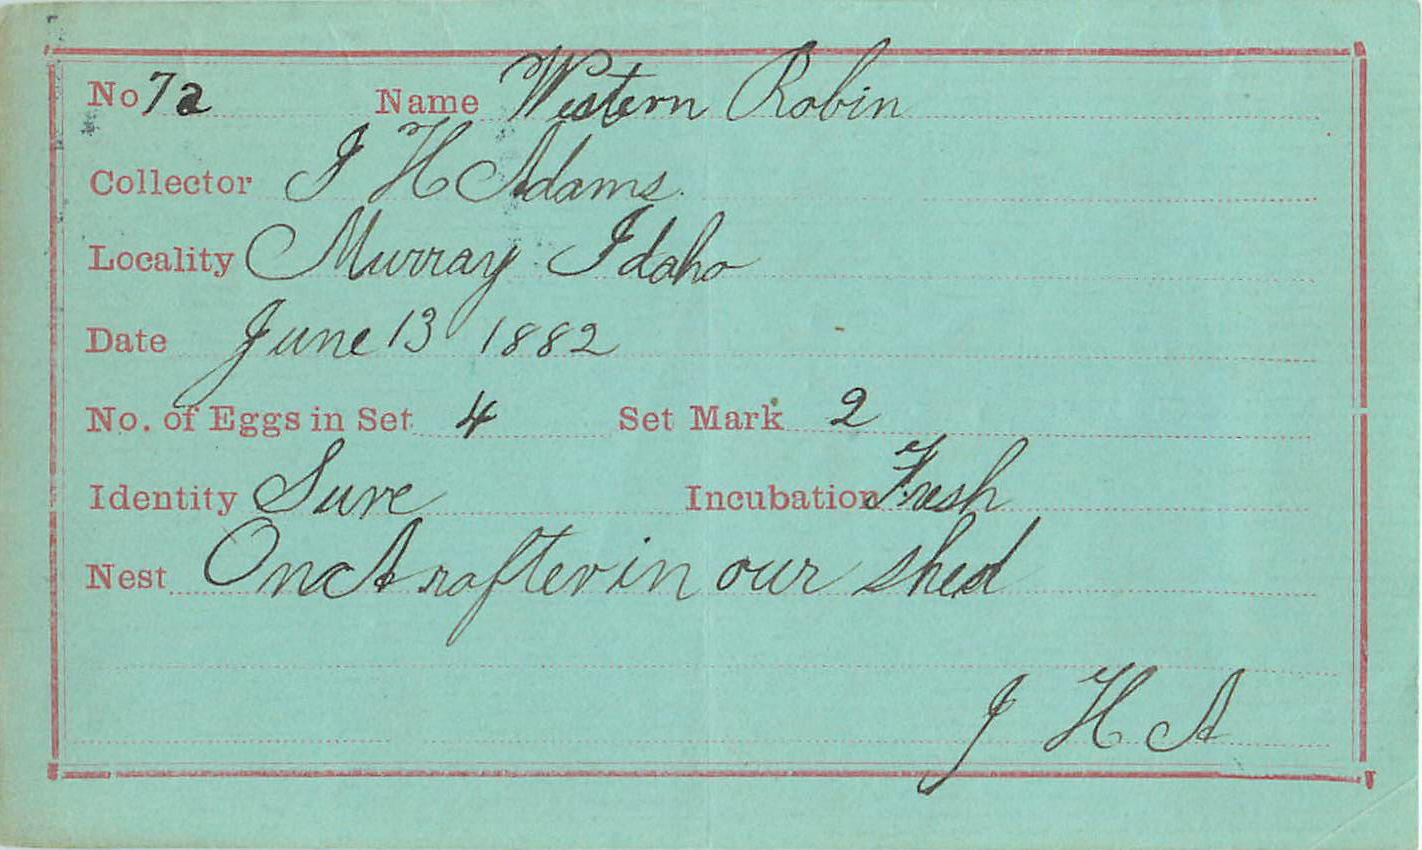 No 7a Name Western Robin
Collector J H Adams.
Locality Murray Idaho
Date June 13 1882
No. of Eggs in Set 4 Set Mark 2
Identity Sure Incubation Fresh
Nest On A rafter in our shed
J H A